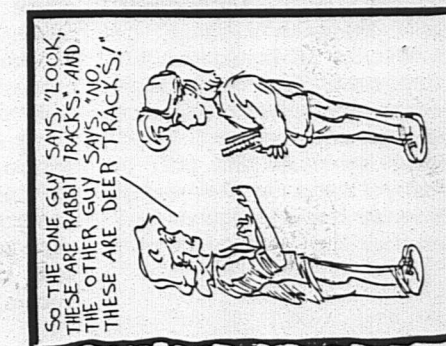 SO THE ONE GUY SAYS, "LOOK,
THESE ARE RABBIT TRACKS." AND
THE OTHER GUY SAYS, "NO,
THESE ARE DEER TRACKS!"